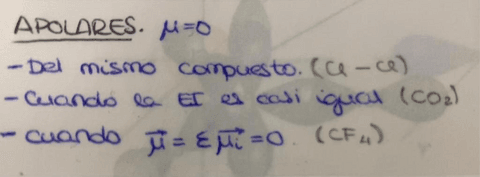 APOLARES. μ=0
- Del mismo compuesto. (Cl - Cl)
- Cuando la EI es casi igual (CO₂)
- cuando μ⃗ = Σ μ⃗i = 0. (CF₄)